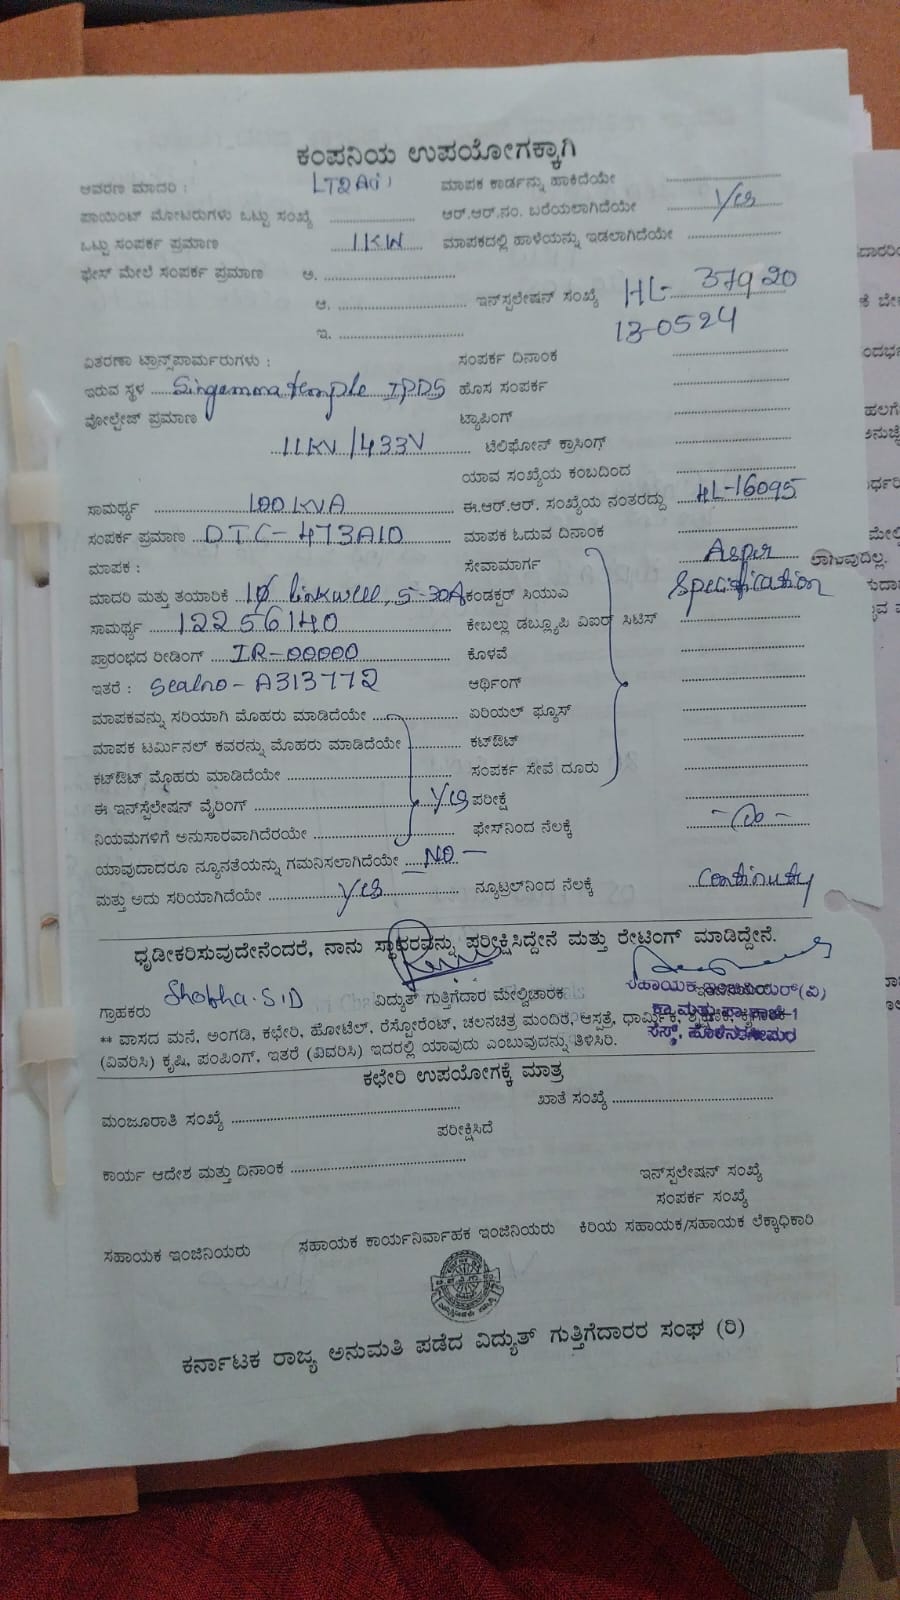 ಕಂಪನಿಯ ಉಪಯೋಗಕ್ಕಾಗಿ
ಆವರಣ ಮಾದರಿ : LT2A(i) ಮಾಪಕ ಕಾರ್ಡನ್ನು ಹಾಕಿದೆಯೇ
ಪಾಯಿಂಟ್ ಮೋಟರುಗಳು ಒಟ್ಟು ಸಂಖ್ಯೆ ಆರ್.ಆರ್.ನಂ. ಬರೆಯಲಾಗಿದೆಯೇ Yes
ಒಟ್ಟು ಸಂಪರ್ಕ ಪ್ರಮಾಣ 1KW ಮಾಪಕದಲ್ಲಿ ಹಾಳೆಯನ್ನು ಇಡಲಾಗಿದೆಯೇ
ಫೇಸ್ ಮೇಲೆ ಸಂಪರ್ಕ ಪ್ರಮಾಣ ಅ.
ಆ. ಇನ್‌ಸ್ಪಲೇಷನ್ ಸಂಖ್ಯೆ HL- 37920
ಇ. 13-0524
ವಿತರಣಾ ಟ್ರಾನ್ಸ್‌ಪಾರ್ಮರುಗಳು : ಸಂಪರ್ಕ ದಿನಾಂಕ
ಇರುವ ಸ್ಥಳ Singamma temple IPDS ಹೊಸ ಸಂಪರ್ಕ
ವೋಲ್ಟೇಜ್ ಪ್ರಮಾಣ ಟ್ಯಾಪಿಂಗ್
11KV/433V ಟೆಲಿಫೋನ್ ಕ್ರಾಸಿಂಗ್
ಯಾವ ಸಂಖ್ಯೆಯ ಕಂಬದಿಂದ
ಸಾಮರ್ಥ್ಯ 100KVA ಈ.ಆರ್.ಆರ್. ಸಂಖ್ಯೆಯ ನಂತರದ್ದು HL-16095
ಸಂಪರ್ಕ ಪ್ರಮಾಣ DTC-473A10 ಮಾಪಕ ಓದುವ ದಿನಾಂಕ
ಮಾಪಕ : ಸೇವಾಮಾರ್ಗ Asper
ಮಾದರಿ ಮತ್ತು ತಯಾರಿಕೆ 1Ø linkwell, 5-30A ಕಂಡಕ್ಟರ್ ಸಿಯುಎ Specification
ಸಾಮರ್ಥ್ಯ 12256140 ಕೇಬಲ್ಲು ಡಬ್ಲ್ಯೂಪಿ ಎಐಆರ್ ಸಿಟಿಸ್
ಪ್ರಾರಂಭದ ರೀಡಿಂಗ್ IR-00000 ಕೊಳವೆ
ಇತರೆ : Sealno-A313772 ಆರ್ಥಿಂಗ್
ಮಾಪಕವನ್ನು ಸರಿಯಾಗಿ ಮೊಹರು ಮಾಡಿದೆಯೇ ಏರಿಯಲ್ ಫ್ಯೂಸ್
ಮಾಪಕ ಟರ್ಮಿನಲ್ ಕವರನ್ನು ಮೊಹರು ಮಾಡಿದೆಯೇ ಕಟ್‌ಔಟ್
ಕಟ್‌ಔಟ್ ಮೊಹರು ಮಾಡಿದೆಯೇ ಸಂಪರ್ಕ ಸೇವೆ ದೂರು
ಈ ಇನ್‌ಸ್ಟೆಲೇಷನ್ ವೈರಿಂಗ್ Yes ಪರೀಕ್ಷೆ
ನಿಯಮಗಳಿಗೆ ಅನುಸಾರವಾಗಿದೆರಯೇ ಫೇಸ್‌ನಿಂದ ನೆಲಕ್ಕೆ
ಯಾವುದಾದರೂ ನ್ಯೂನತೆಯನ್ನು ಗಮನಿಸಲಾಗಿದೆಯೇ NO -
ಮತ್ತು ಅದು ಸರಿಯಾಗಿದೆಯೇ Yes ನ್ಯೂಟ್ರಲ್‌ನಿಂದ ನೆಲಕ್ಕೆ Continuty
ಧೃಡೀಕರಿಸುವುದೇನೆಂದರೆ, ನಾನು ಸ್ಥಾವರವನ್ನು ಪರೀಕ್ಷಿಸಿದ್ದೇನೆ ಮತ್ತು ರೇಟಿಂಗ್ ಮಾಡಿದ್ದೇನೆ.
ಗ್ರಾಹಕರು Shobha.S.D ವಿದ್ಯುತ್ ಗುತ್ತಿಗೆದಾರ ಮೇಲ್ವಿಚಾರಕ ಸಹಾಯಕ ಇಂಜಿನಿಯರ್(ವಿ)
** ವಾಸದ ಮನೆ, ಅಂಗಡಿ, ಕಛೇರಿ, ಹೋಟೆಲ್, ರೆಸ್ಟೋರೆಂಟ್, ಚಲನಚಿತ್ರ ಮಂದಿರ, ಆಸ್ಪತ್ರೆ, ಧಾರ್ಮಿಕ,
(ವಿವರಿಸಿ) ಕೃಷಿ, ಪಂಪಿಂಗ್, ಇತರೆ (ವಿವರಿಸಿ) ಇದರಲ್ಲಿ ಯಾವುದು ಎಂಬುವುದನ್ನು ತಿಳಿಸಿರಿ.
ಕಛೇರಿ ಉಪಯೋಗಕ್ಕೆ ಮಾತ್ರ
ಮಂಜೂರಾತಿ ಸಂಖ್ಯೆ ಖಾತೆ ಸಂಖ್ಯೆ
ಪರೀಕ್ಷಿಸಿದೆ
ಕಾರ್ಯ ಆದೇಶ ಮತ್ತು ದಿನಾಂಕ
ಇನ್‌ಸ್ಪಲೇಷನ್ ಸಂಖ್ಯೆ
ಸಂಪರ್ಕ ಸಂಖ್ಯೆ
ಸಹಾಯಕ ಇಂಜಿನಿಯರು ಸಹಾಯಕ ಕಾರ್ಯನಿರ್ವಾಹಕ ಇಂಜಿನಿಯರು ಕಿರಿಯ ಸಹಾಯಕ/ಸಹಾಯಕ ಲೆಕ್ಕಾಧಿಕಾರಿ
ಕರ್ನಾಟಕ ರಾಜ್ಯ ಅನುಮತಿ ಪಡೆದ ವಿದ್ಯುತ್ ಗುತ್ತಿಗೆದಾರರ ಸಂಘ (ರಿ)